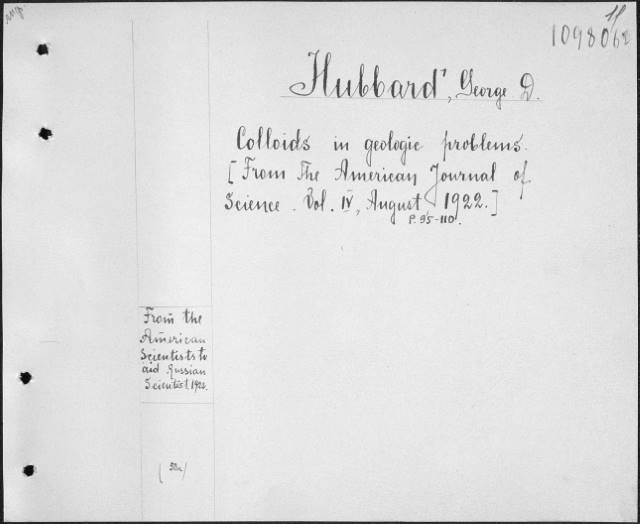 11
109806
Hubbard, George D.
Colloids in geologic problems.
[From The American Journal of
Science. Vol. IV, August 1922.]
P. 95-110.
From the
American
Scientists to
aid Russian
Scientist 192